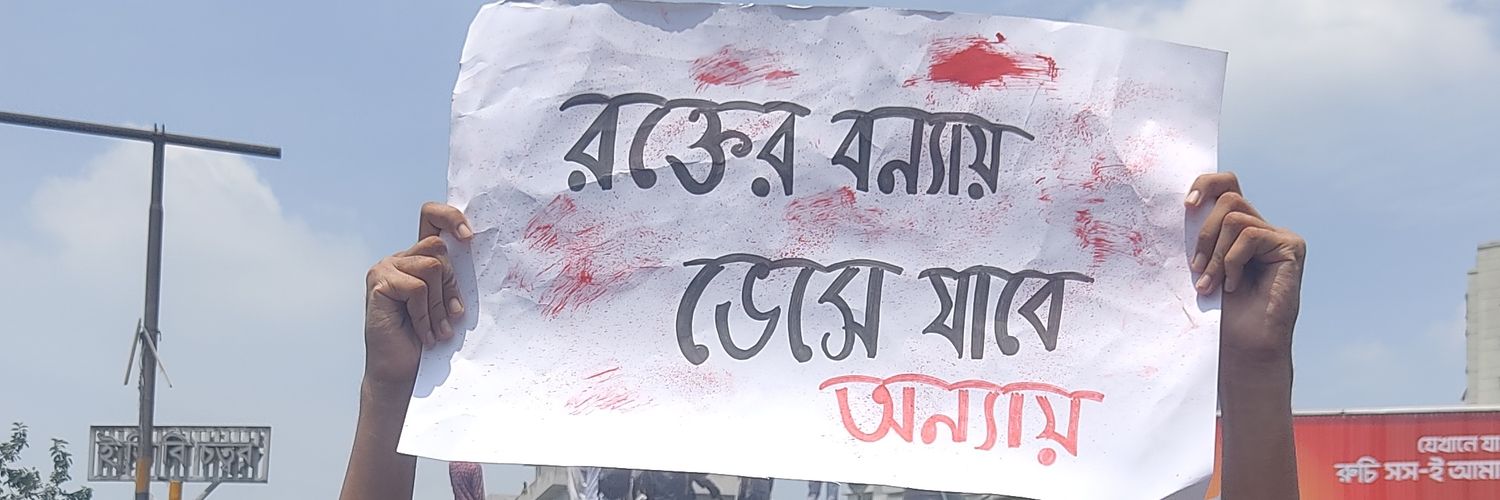 রক্তের বন্যায়
ভেসে যাবে
অন্যায়
ইসিবি চত্বর
যেখানে যা
রুচি সস-ই আমা